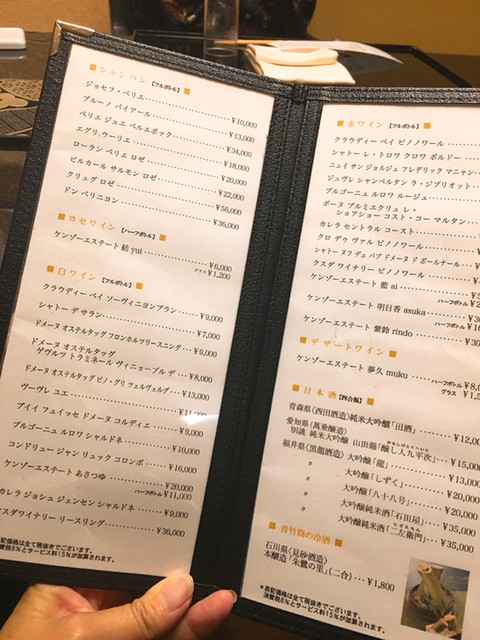 ■ シャンパン【フルボトル】■
ジョセフ・ペリエ ¥10,000
ブルーノ パイアール ¥13,000
ペリエ ジュエ ベルエポック ¥34,000
エグリ・ウーリエ ¥18,000
ローラン ペリエ ロゼ ¥20,000
ビルカール サルモン ロゼ ¥22,000
クリュグ ロゼ ¥56,000
ドン ペリニヨン ¥36,000
■ ロゼワイン【ハーフボトル】■
ケンゾーエステート 結 yui ¥6,000
グラス ¥1,200
■ 白ワイン【フルボトル】■
クラウディー ベイ ソーヴィニヨンブラン ¥9,000
シャトー デ サラン ¥7,000
ドメーヌ オステルタッグ フロンホルツリースニング ¥9,000
ドメーヌ オステルタッグ
ゲヴルツ トラミネール ヴィニョーブル デ ¥8,000
ドメーヌ オステルタッグ ピノ・グリ ツェルヴェルグ ¥13,000
ヴーヴレ ユエ ¥11,000
プイイ フュイッセ ドメーヌ コルディエ ¥9,000
ブルゴーニュ ルロワ シャルドネ ¥10,000
コンドリュー ジャン リュック コロンボ ¥16,000
ケンゾーエステート あさつゆ ¥20,000
ハーフボトル ¥11,000
カレラ ジョシュ ジェンセン シャルドネ ¥9,000
スダワイナリー リースリング ¥36,000
表記価格は全て税抜きでございます。
消費税8%とサービス料15%が加算されます。
■ 赤ワイン【フルボトル】■
クラウディー ベイ ピノノワール
シャトー レ・トロワ クロワ ボルドー
ニュイ サン ジョルジュ フレデリック マニャン
ジュヴレ シャンベルタン ラ・ジブリオット
ブルゴーニュ ルロワ ルージュ
ボーヌ プルミエクリュ レ・
ショアショー コスト・コー マルタン
カレラ セントラル コースト
クロ デゥ ヴァル ピノノワール
シャトー ヌフ デュ パプ ドメーヌ ド ボールナール
クスダ ワイナリー ピノノワール
ケンゾーエステート 藍 ai
ハーフボトル
ケンゾーエステート 明日香 asuka
ハーフボトル
ケンゾーエステート 紫鈴 rindo
■ デザートワイン ■
ケンゾーエステート 夢久 muku ハーフボトル ¥8,0
グラス ¥1,5
■ 日本酒【四合瓶】■
青森県〈西田酒造〉純米大吟醸「田酒」 ¥12,00
愛知県〈萬乗醸造〉
別誂 純米大吟醸 山田錦「醸し人九平次」 ¥15,000
福井県〈黒龍酒造〉大吟醸「龍」 ¥13,000
〃 大吟醸「しずく」 ¥20,000
〃 大吟醸「八十八号」 ¥20,000
〃 大吟醸純米酒「石田屋」 ¥35,000
〃 大吟醸純米酒「二左衛門」 ¥35,000
■ 青竹筒の冷酒 ■
石川県〈見砂酒造〉
本醸造「朱鷺の里」(二合) ¥1,800
*表記価格は全て税抜きでございます。
消費税8%とサービス料15%が加算されます。